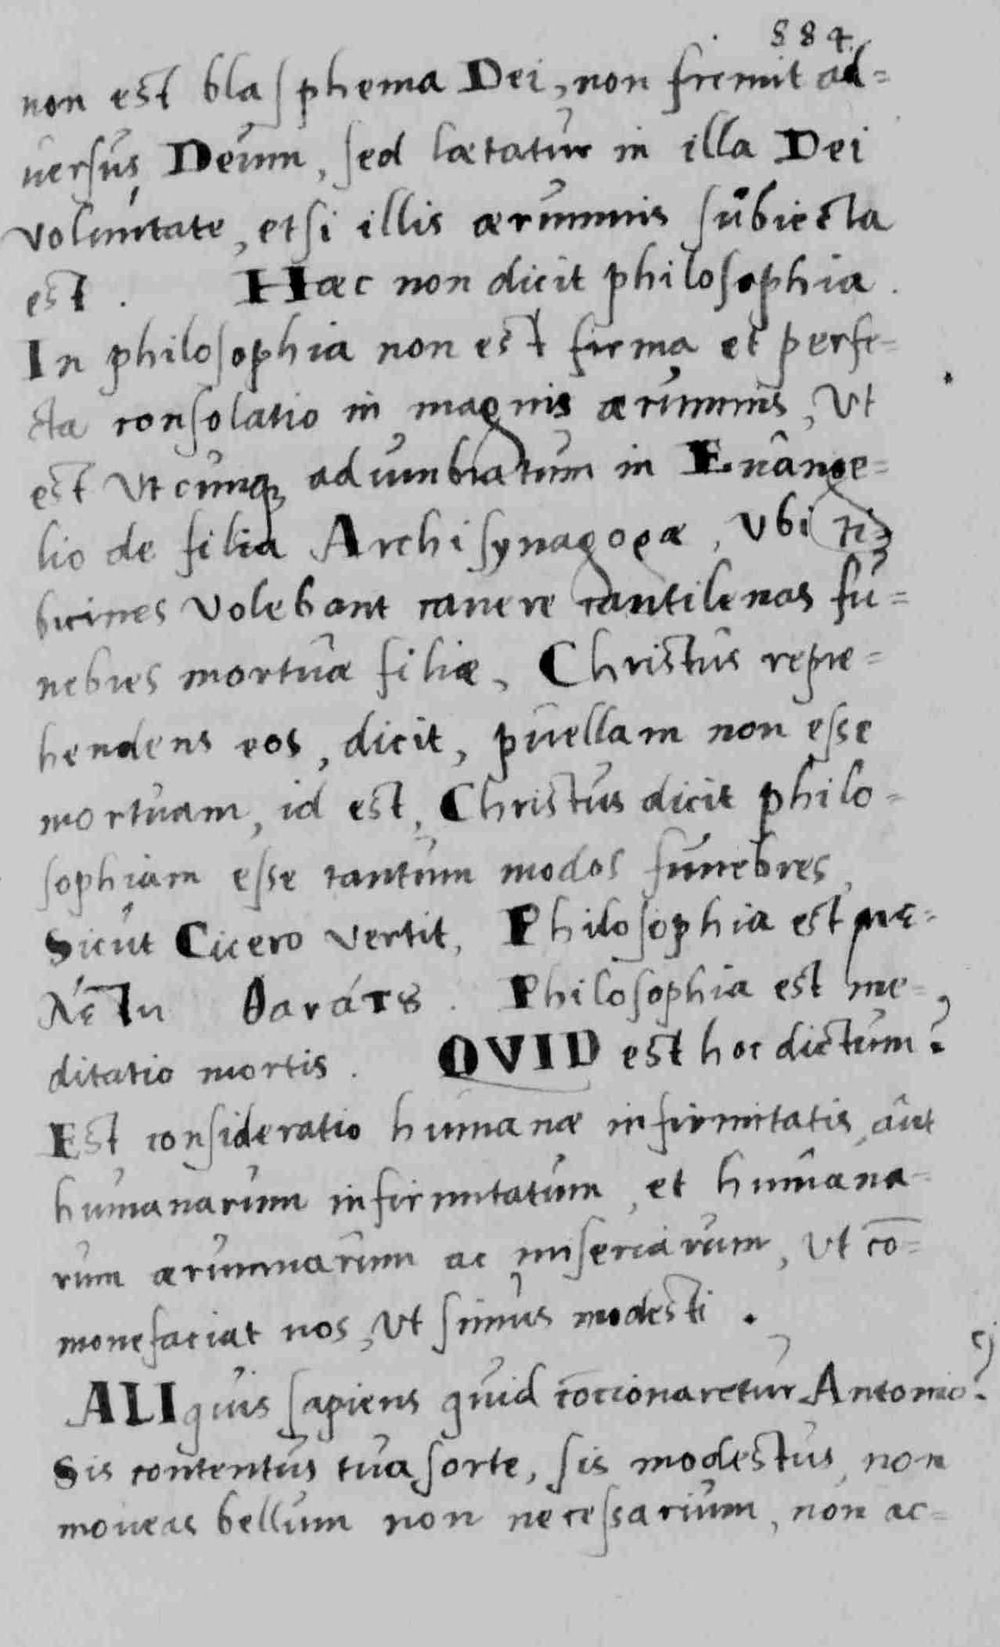 884.
non est blasphema Dei, non fremit ad=
uersus Deum, sed lætatur in illa Dei
voluntate, etsi illis ærumnis subiecta
est. Hæc non dicit philosophia.
In philosophia non est firma et perfe=
cta consolatio in magnis ærumnis, Vt
est Vtcunque adumbratum in Euange=
lio de filia Archisynagogæ, Vbi ti=
bicines volebant canere cantilenas fu=
nebres mortuæ filiæ, Christus repre=
hendens eos, dicit, puellam non esse
mortuam, id est, Christus dicit philo=
sophiam esse tantum modos funebres,
Sicut Cicero vertit, Philosophia est με=
λέτη θανάτȣ. Philosophia est me=
ditatio mortis. QVID est hoc dictum?
Est consideratio humanæ infirmitatis, aut
humanarum infirmitatum, et humana=
rum ærumnarum ac miseriarum, Vt cō=
monefaciat nos, Vt simus modesti.
ALIquis sapiens quid cōcionaretur Antonio?
Sis contentus tua sorte, sis modestus, non
moueas bellum non necessarium, non ac=